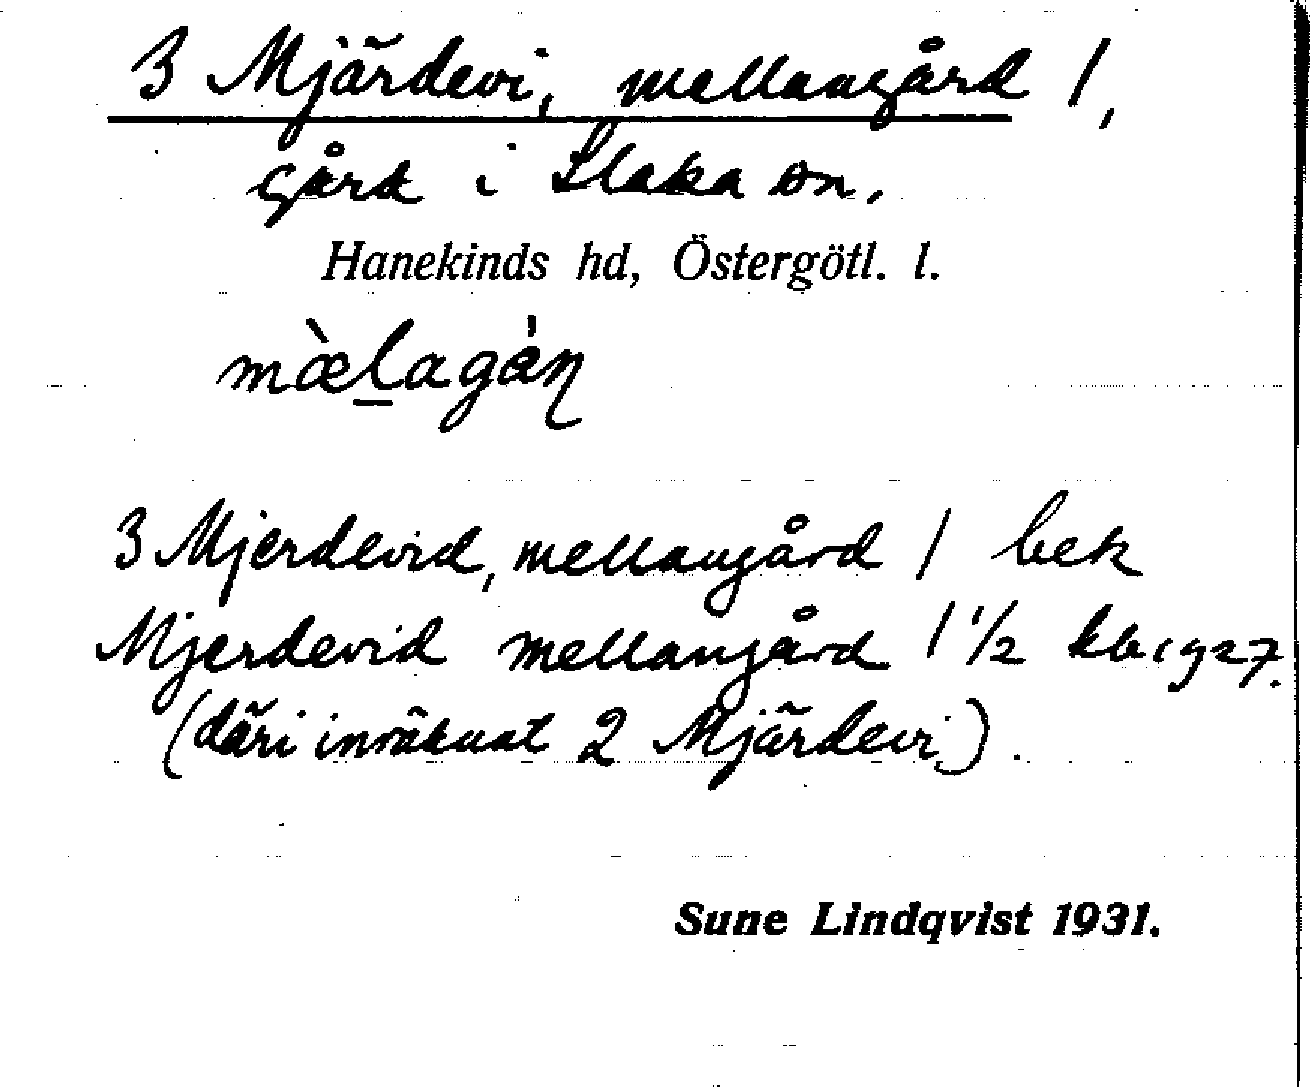 3 Mjärdevi, mellangård 1,
gård i Slaka sn.
Hanekinds hd, Östergötl. l.
mæ̀l̠agáṇ
3 Mjerdevid, mellangård 1 bek
Mjerdevid mellangård 1 1/2 kb 1927.
(däri inräknat 2 Mjärdevi).
Sune Lindqvist 1931.